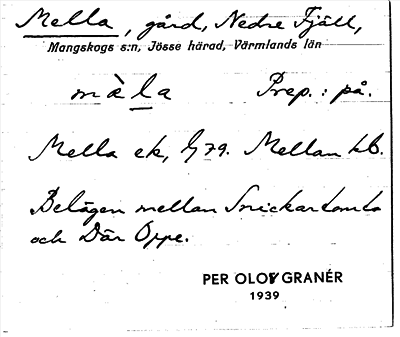 Mella, gård, Nedre Fjäll,
Mangskogs s:n, Jösse härad, Värmlands län
mèla Prep.: på.
Mella ek, G79. Mellan kb.
Belägen mellan Snickartomta
och Där Oppe.
PER OLOF GRANÉR
1939